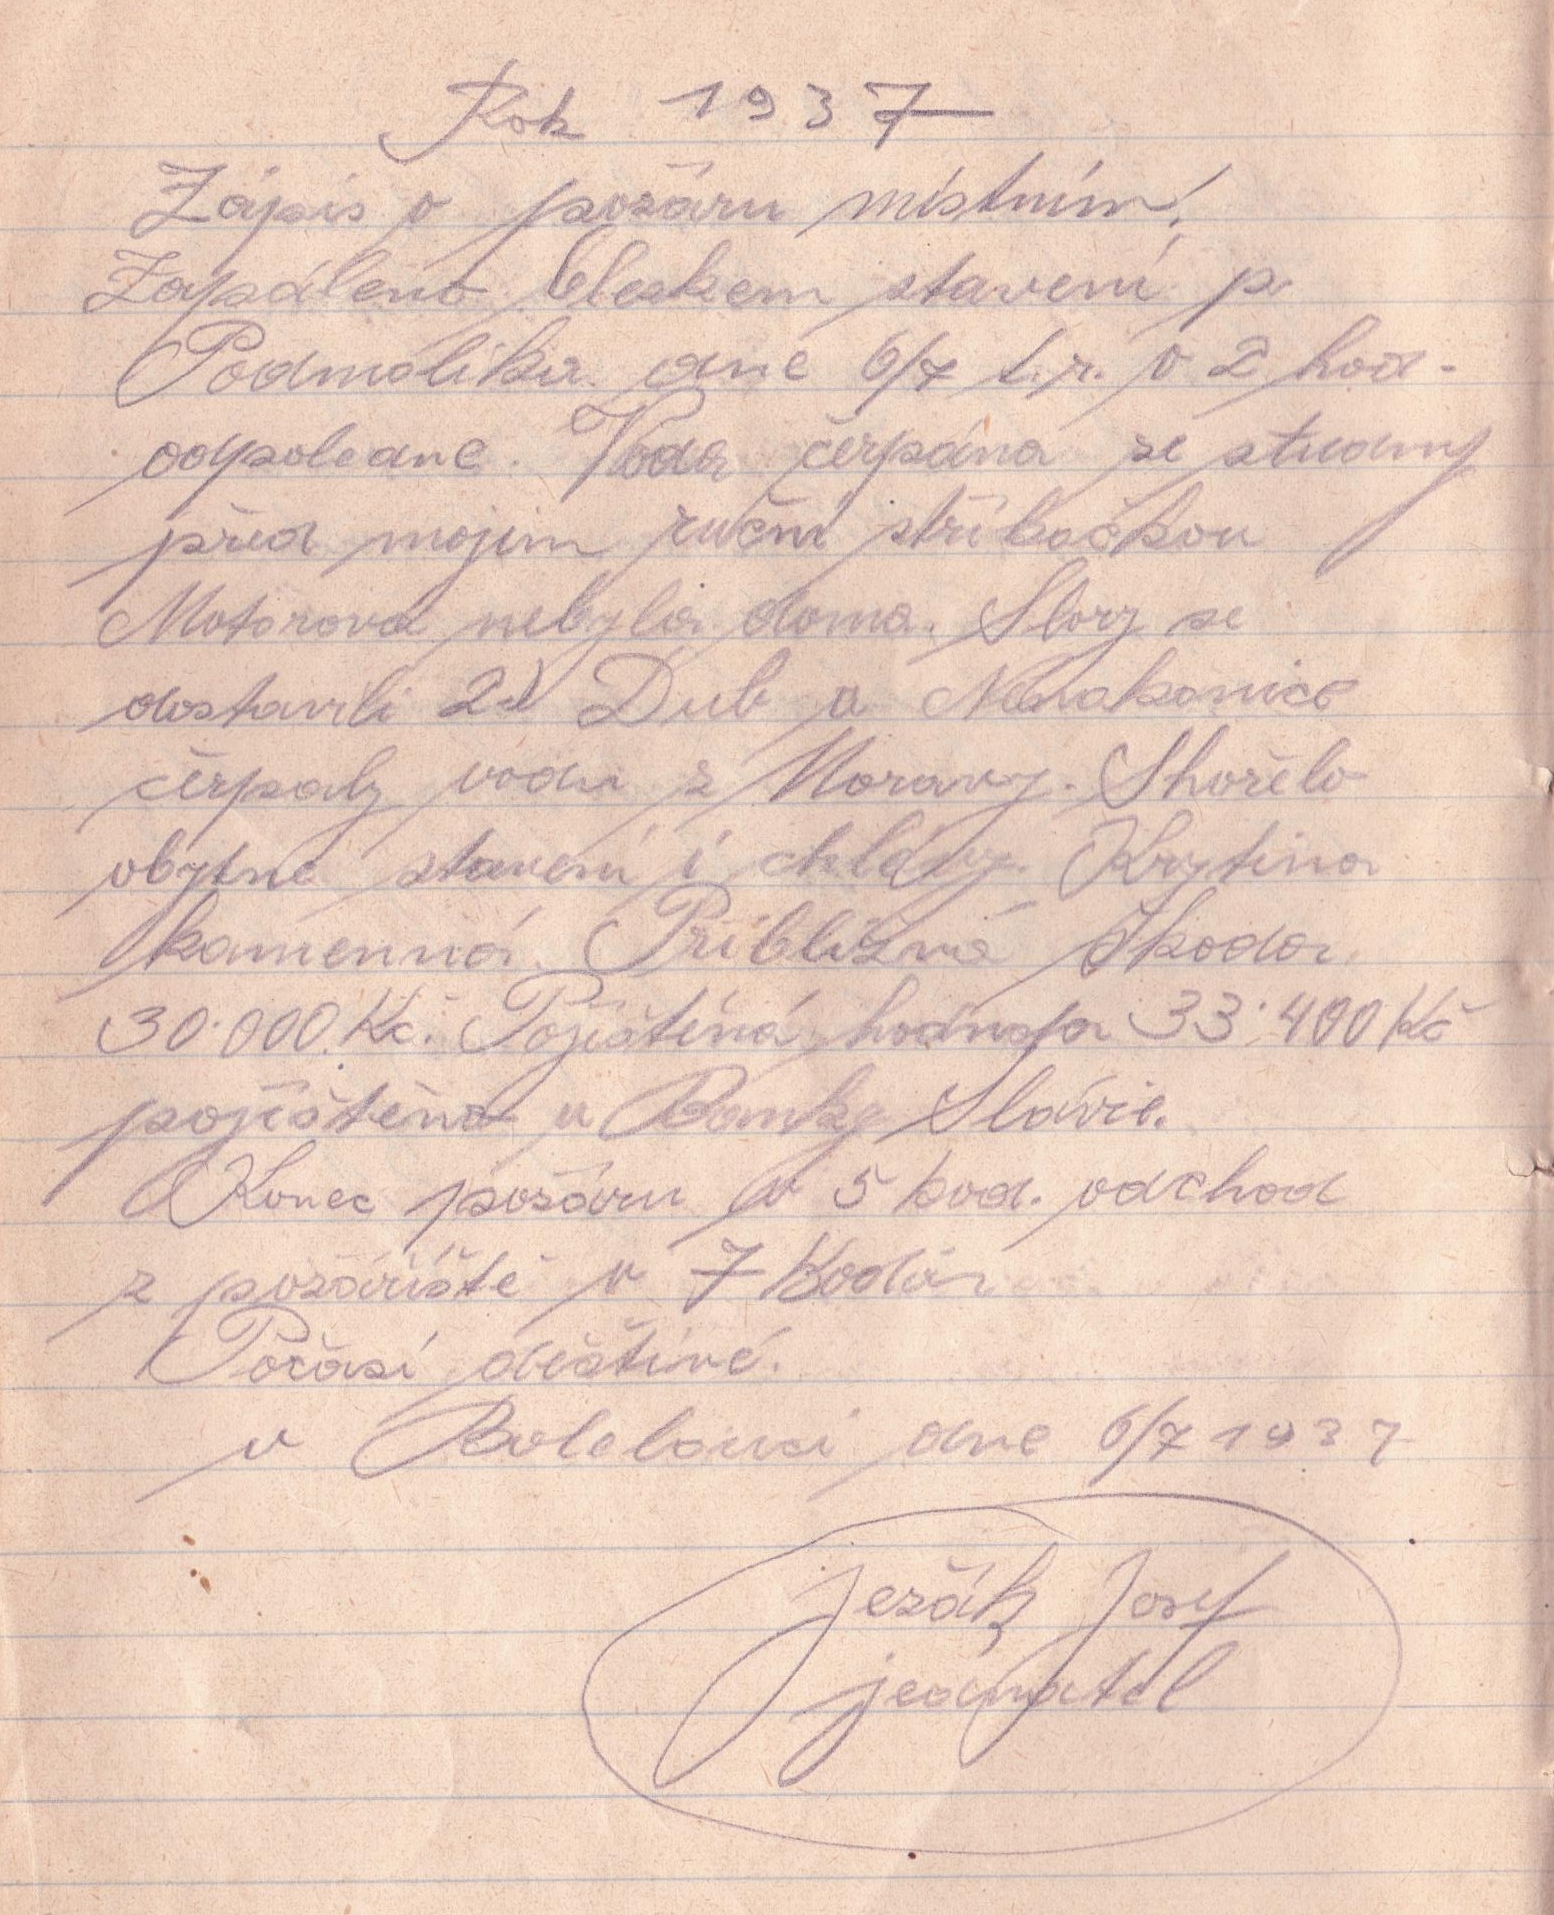 Rok 1937
Zápis o požáru místním.
Zapáleno bleskem stavení p.
Podmolíka dne 6/7 t.r. v 2 hod.
odpoledne. Voda čerpána ze studny
před mojim ruční stříkačkou
Motorova nebyla doma. Sbory se
dostavili 2 Dub a Nenakonice
čerpaly vodu z Moravy. Shořelo
obytné stavení i chlévy. Krytina
kamenná. Přibližná škoda
30.000 Kč. Pojištěná hodnota 33.400 Kč
pojištěno u Banky Slávie.
Konec požáru v 5 hod. odchod
z požářiště v 7 hodin
Počasí deštivé.
v Bolelouci dne 6/7 1937
Ježák Josef
jednatel